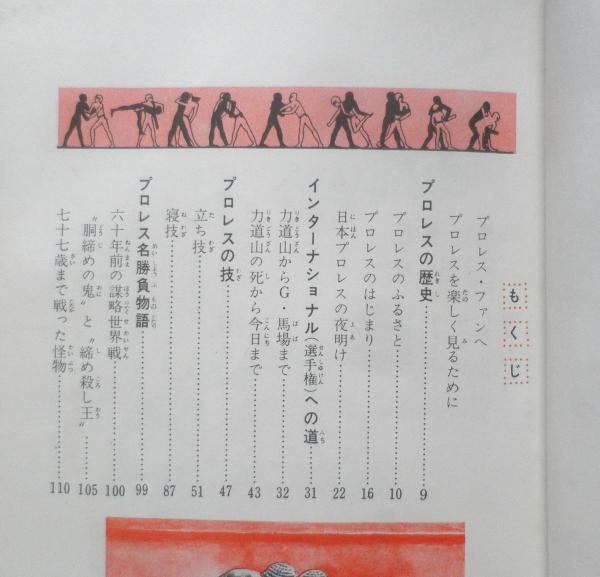 もくじ
プロレス・ファンへ
プロレスを楽しく見るために
プロレスの歴史……9
プロレスのふるさと……10
プロレスのはじまり……16
日本プロレスの夜明け……22
インターナショナル(選手権)への道……31
力道山からG・馬場まで……32
力道山の死から今日まで……43
プロレスの技……47
立ち技……51
寝技……87
プロレス名勝負物語……99
六十年前の謀略世界戦……100
“胴締めの鬼”と“締め殺し王”……105
七十七歳まで戦った怪物……110